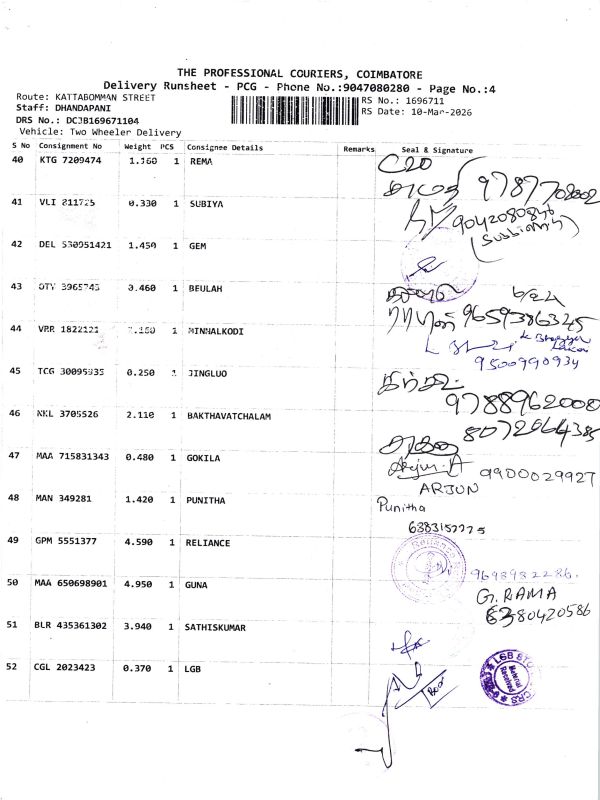 THE PROFESSIONAL COURIERS, COIMBATORE
Delivery Runsheet - PCG - Phone No.:9047080280 - Page No.:4
Route: KATTABOMMAN STREET
Staff: DHANDAPANI
DRS No.: DCJB169671104
Vehicle: Two Wheeler Delivery
RS No.: 1696711
RS Date: 10-Mar-2026
S No Consignment No Weight PCS Consignee Details Remarks Seal & Signature
40 KTG 7209474 1.160 1 REMA
9787708002
41 VLI 811725 0.330 1 SUBIYA
9042080846
42 DEL 530951421 1.450 1 GEM
43 3965743 0.460 1 BEULAH
9659386345
44 VRR 1822121 MINNALKODI
9500990934
45 TCG 30095935 0.250 1 JINGLUO
9788962008
46 NKL 3705526 2.110 1 BAKTHAVATCHALAM
47 MAA 715831343 0.480 1 GOKILA
Arjun.A 9900029927
ARJUN
48 MAN 349281 1.420 1 PUNITHA
Punitha
49 GPM 5551377 4.590 1 RELIANCE
Reliance
50 MAA 650698901 4.950 1 GUNA
G. RAMA
6380420586
51 BLR 435361302 3.940 1 SATHISKUMAR
52 CGL 2023423 0.370 1 LGB
LGB
Material
Received